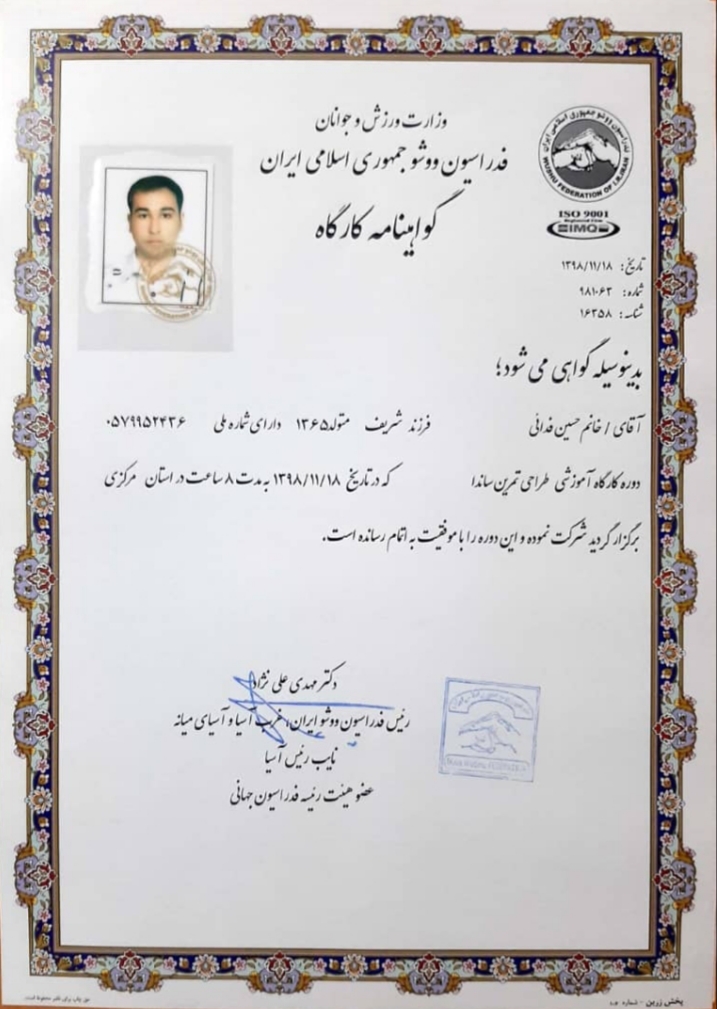 وزارت ورزش و جوانان
فدراسیون ووشو جمهوری اسلامی ایران
گواهینامه کارگاه
فدراسیون ووشو جمهوری اسلامی ایران
WUSHU FEDERATION OF I.R.IRAN
ISO 9001
SIMQ
تاریخ: ۱۳۹۸/۱۱/۱۸
شماره: ۹۸۱۰۶۳
شناسه: ۱۶۳۵۸
بدینوسیله گواهی می شود؛
آقای / خانم حسین فدائی فرزند شریف متولد ۱۳۶۵ دارای شماره ملی ۰۵۷۹۹۵۲۴۳۶
دوره کارگاه آموزشی طراحی تمرین ساندا که در تاریخ ۱۳۹۸/۱۱/۱۸ به مدت ۸ ساعت در استان مرکزی
برگزار گردید شرکت نموده و این دوره را با موفقیت به اتمام رسانده است.
دکتر مهدی علی نژاد
رئیس فدراسیون ووشو ایران، غرب آسیا و آسیای میانه
نایب رئیس آسیا
عضو هیئت رئیسه فدراسیون جهانی
پخش زرین - شماره
حق چاپ برای ناشر محفوظ است.